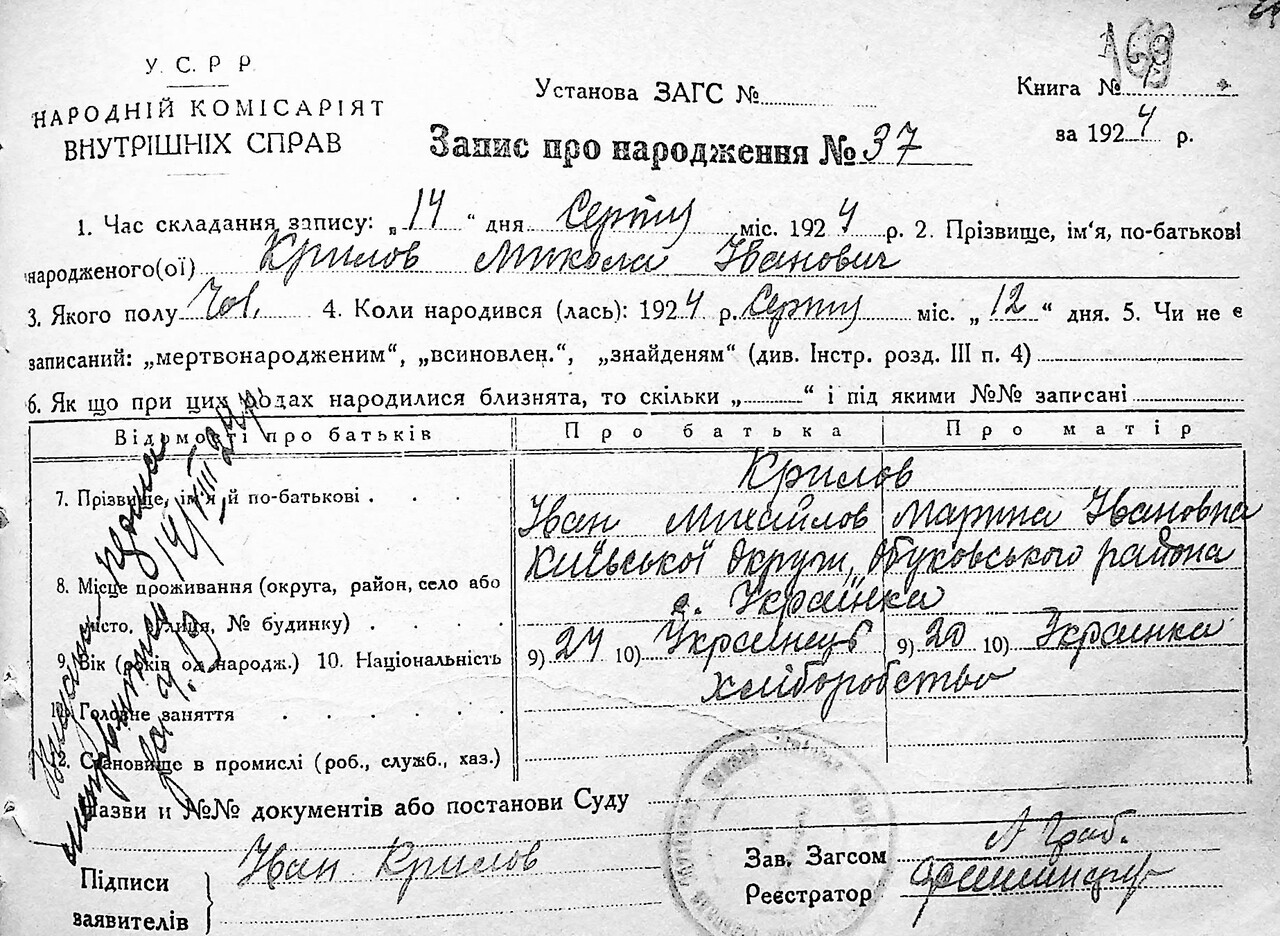 169
У. С. Р Р.
НАРОДНІЙ КОМІСАРІЯТ
ВНУТРІШНІХ СПРАВ
Установа ЗАГС №
Книга №
за 1924 р.
Запис про народження № 37
1. Час складання запису: „14“ дня Серпня міс. 1924 р. 2. Прізвище, ім‘я, по-батькові
народженого(ої) Крилов Микола Іванович
3. Якого полу Чол. 4. Коли народився (лась): 1924 р. Серпня міс. „12“ дня. 5. Чи не є
записаний: „мертвонародженим“, „всиновлен.“, „знайденям“ (див. Інстр. розд. III п. 4)
6. Як що при цих родах народилися близнята, то скільки „ “ і під якими №№ записані
Відомості про батьків Про батька Про матір
Крилов
7. Прізвище, ім‘я й по-батькові . . . Іван Михайлов Марина Івановна
Київської Округи, Обуковського района
8. Місце проживання (округа, район, село або
с. Українка
місто, вулиця, № будинку) . . . .
9. Вік (років од народж.) 10. Національність 9) 24 10) Українець 9) 20 10) Українка
хліборобство
11. Головне заняття . . . . .
12. Становище в промислі (роб., служб., хаз.)
Назви и №№ документів або постанови Суду
Підписи
заявителів
Іван Крилов
Зав. Загсом
Реєстратор
14/VIII 24 р.